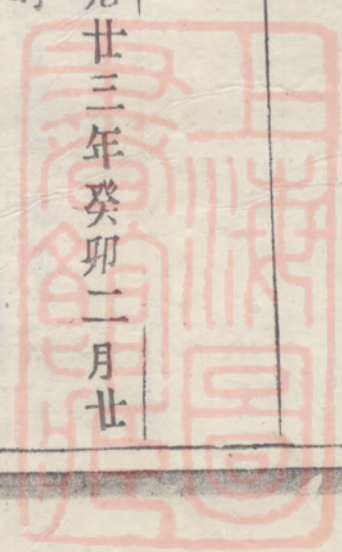 廿三年癸卯二月廿
上海圖書館藏